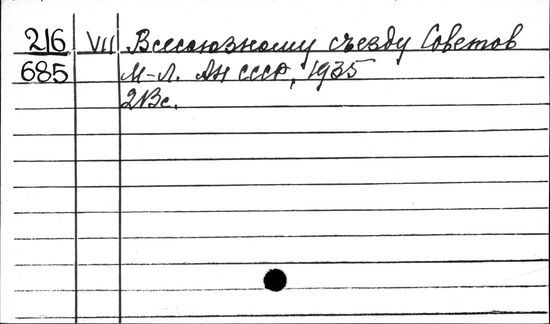 216 VII Всесоюзному съезду Советов
685 М-Л. АН СССР, 1935
2Вс.